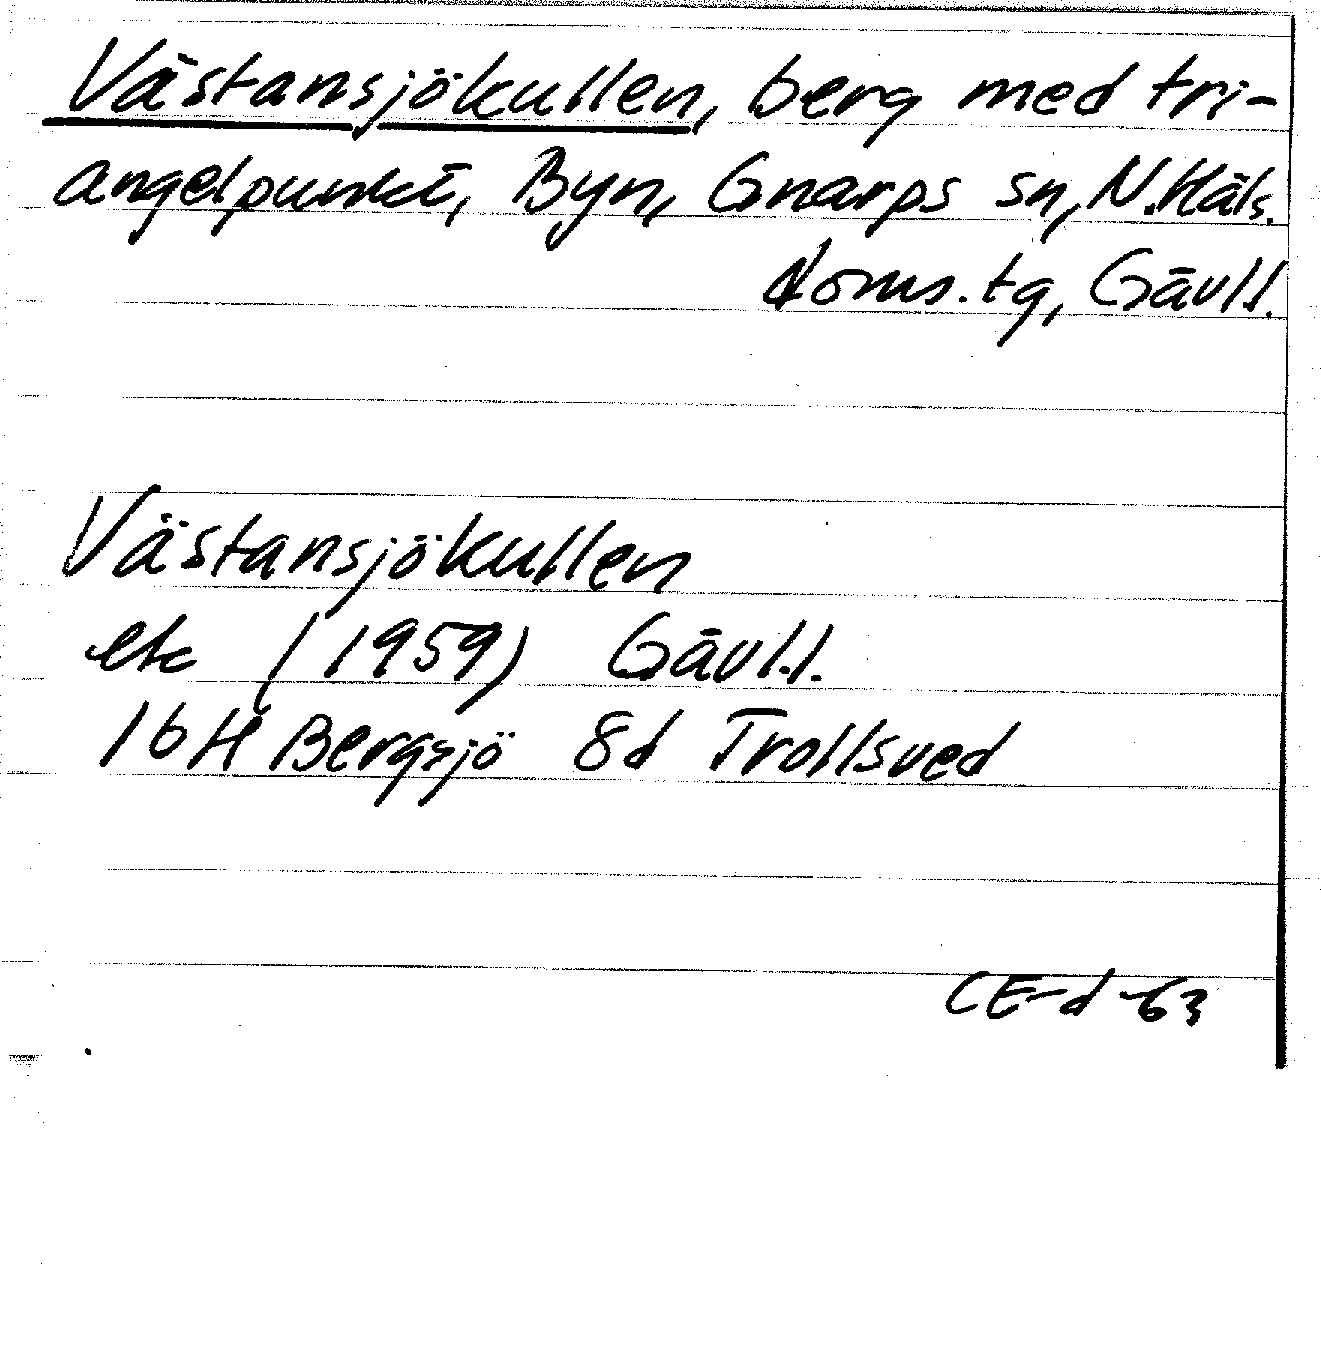 Västansjökullen, berg med tri-
angelpunkt, Byn, Gnarps sn, N. Häls.
doms.tg, Gävl.l.
Västansjökullen
ek (1959) Gävl.l.
16H Bergsjö 8d Trollsved
CE-d -63